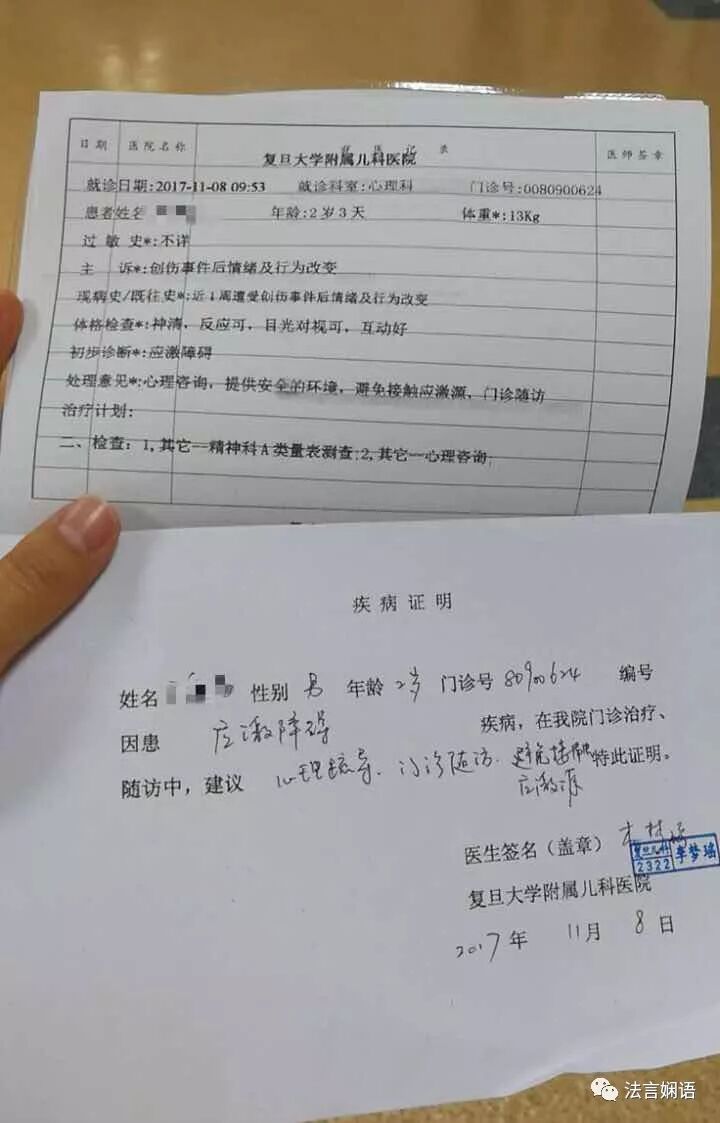 就医记录
日期 医院名称 复旦大学附属儿科医院 医师签章
就诊日期:2017-11-08 09:53 就诊科室:心理科 门诊号:0080900624
患者姓名 年龄:2岁3天 体重*:13Kg
过敏史*:不详
主诉*:创伤事件后情绪及行为改变
现病史/既往史*:近1周遭受创伤事件后情绪及行为改变
体格检查*:神清，反应可，目光对视可，互动好
初步诊断*:应激障碍
处理意见*:心理咨询，提供安全的环境，避免接触应激源，门诊随访
治疗计划:
二、检查: 1,其它—精神科A类量表测查;2,其它—心理咨询;
疾病证明
姓名 性别 男 年龄 2岁 门诊号 80900624 编号
因患 应激障碍 疾病，在我院门诊治疗、
随访中，建议 心理疏导、门诊随访、避免接触 特此证明。
应激源
医生签名（盖章）
复旦儿科 2322 李梦瑶
复旦大学附属儿科医院
2017年 11月 8日
法言娴语